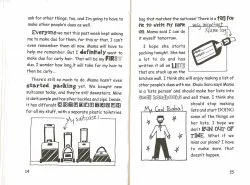 ask for other things, too, and I'm going to have to
make other people's ones as well.
Everyone we met this past week kept asking
me to make due for them, for this or that. I can't
even remember them all now. Mama will have to
help me remember. But I definitely want to
make due for curly hair. That will be my FIRST
due. I wonder how long it will take for my hair to
then be curly...
There's still so much to do. Mama hasn't even
started packing yet. We bought new
suitcases today, and Mama will dismantle. Mine
is dark purple and has buckles and zips. Inside,
it has different
for all my stuff, with a separate plastic toiletries
My suitcase!
14
bag that matched the suitcase! There is a tag for
me to write my name
on. Mama said I can do
it myself tomorrow.
I hope she starts
packing tonight. She has
a lot to do and has
written it all in LISTS
that are stuck up on the
kitchen wall. I think she will enjoy making a lot of
other people's dues with me. She loves lists. Mama
is a 'lists person' and should make her lists into
and sell them. I think she
should stop making
lists and start DOING
some of the things on
her lists. I hope we
don't RUN OUT OF
TIME. What if we
miss our plane? I have
to make sure that
doesn't happen.
My Cool Baba!
15